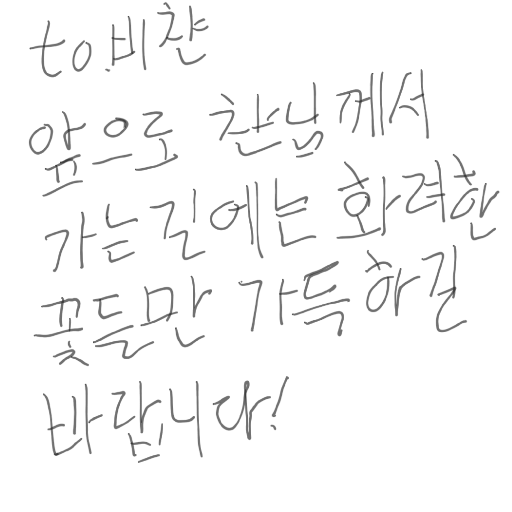 to.비챤
앞으로 챤님께서
가는길에는 화려한
꽃들만 가득하길
바랍니다!